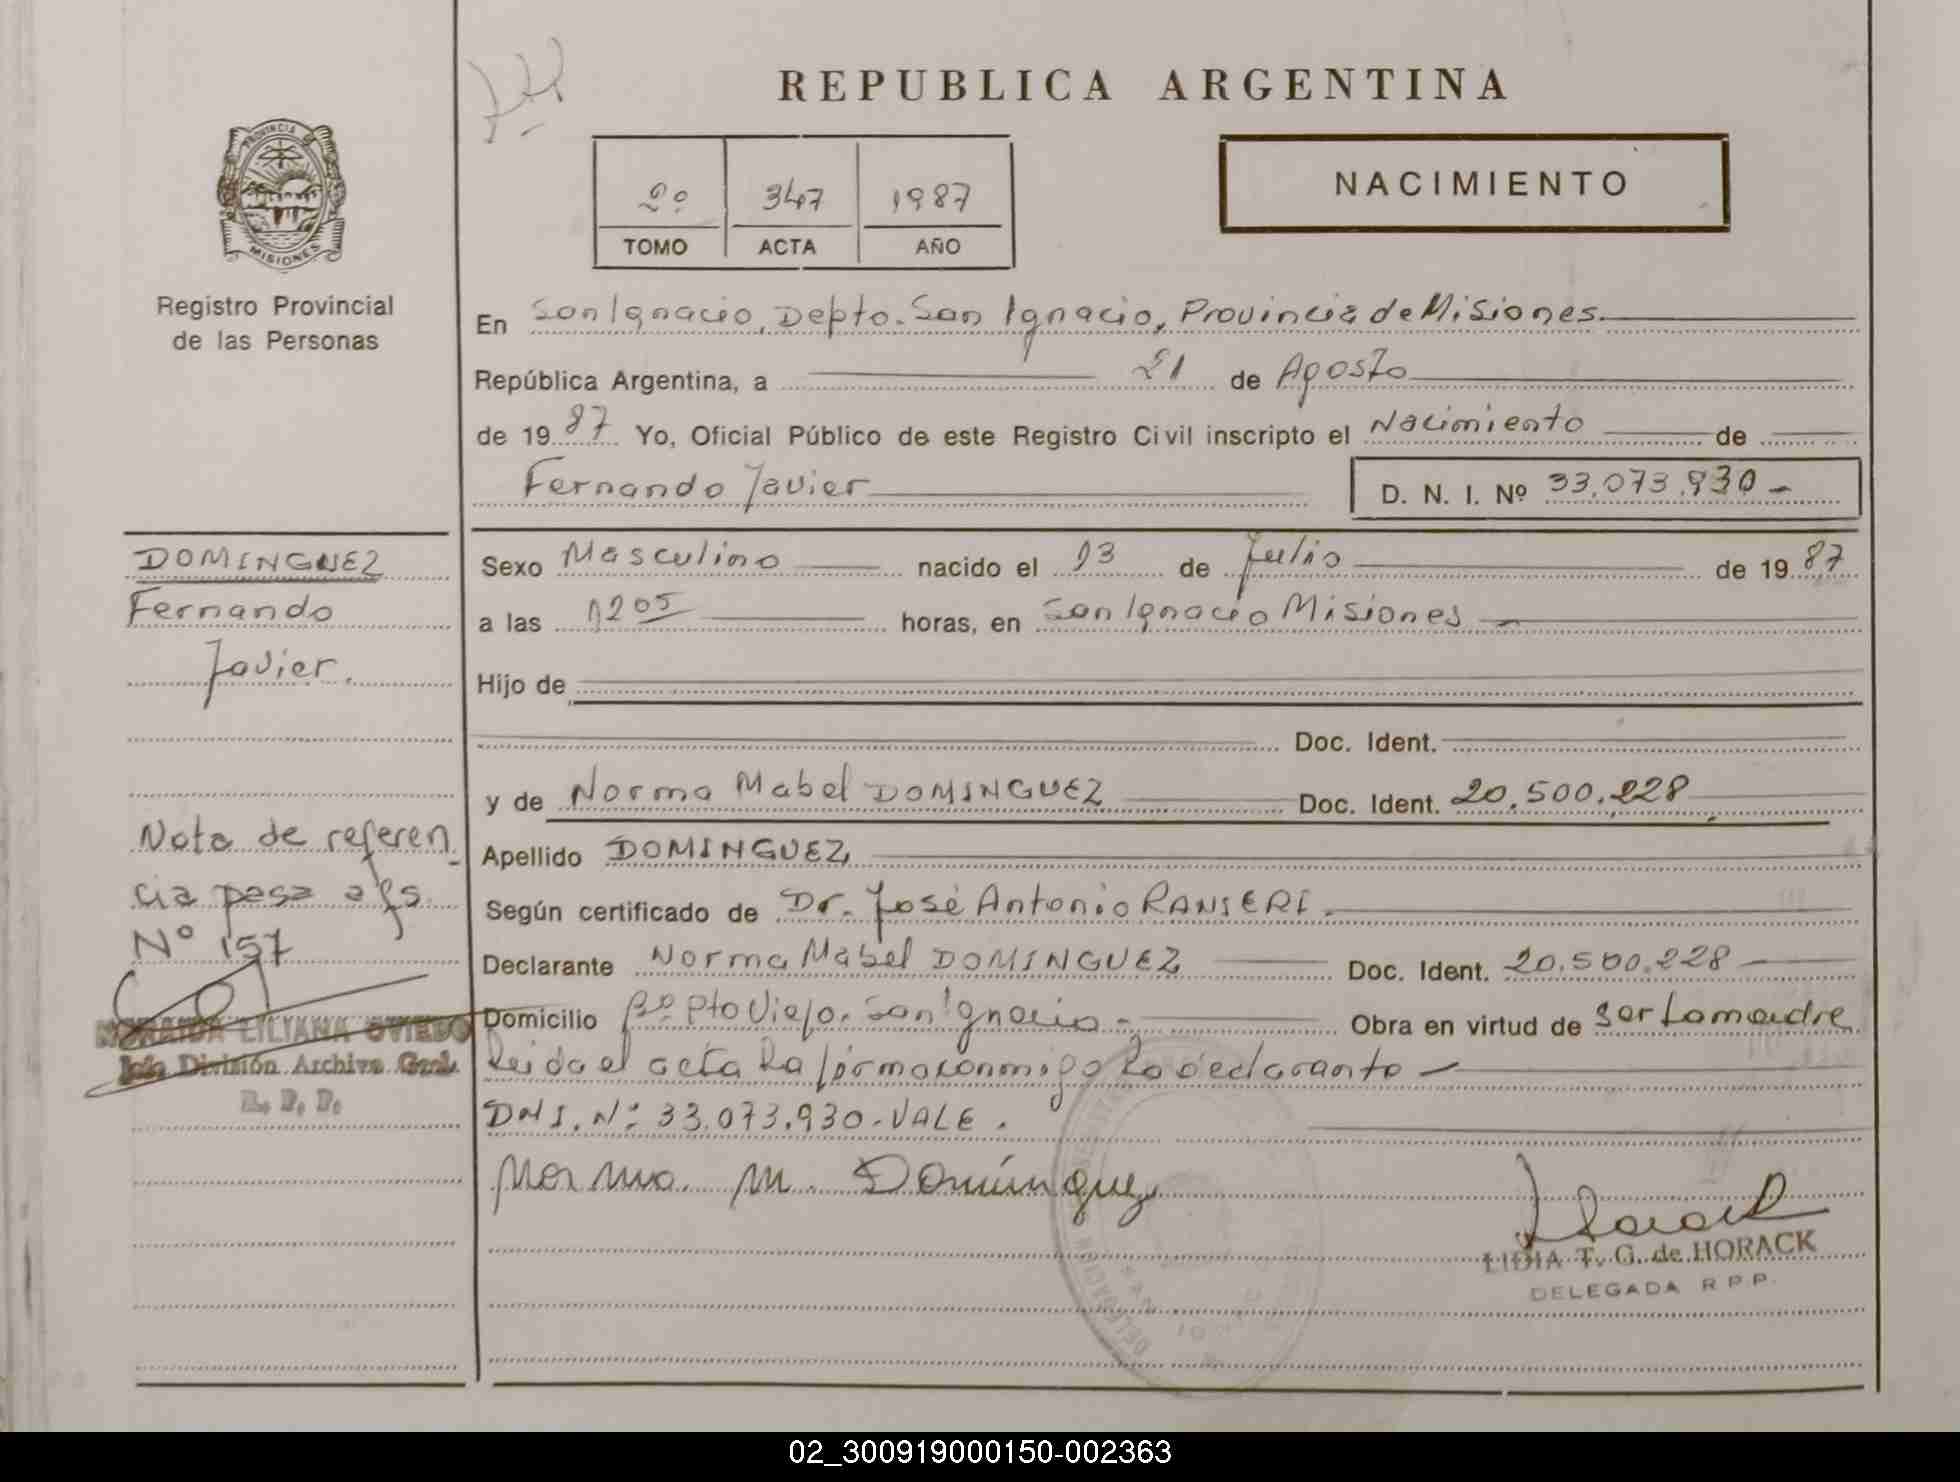 REPUBLICA ARGENTINA
PROVINCIA DE
MISIONES
Registro Provincial
de las Personas
2º 347 1987
TOMO ACTA AÑO
NACIMIENTO
En San Ignacio, Depto. San Ignacio, Provincia de Misiones.
República Argentina, a 21 de Agosto
de 1987 Yo, Oficial Público de este Registro Civil inscripto el Nacimiento de
Fernando Javier
D. N. I. Nº 33.073.930-
Sexo Masculino nacido el 13 de Julio de 1987
a las 1205 horas, en San Ignacio Misiones -
Hijo de
Doc. Ident.
y de Norma Mabel DOMINGUEZ Doc. Ident. 20.500.228
Apellido DOMINGUEZ
Según certificado de Dr. José Antonio RANIERI.
Declarante Norma Mabel DOMINGUEZ Doc. Ident. 20.500.228
Domicilio Bº Pto Viejo. San Ignacio - Obra en virtud de ser la madre
Leida el acta la firma conmigo la declarante -
DNI. Nº 33.073.930-VALE.
Norma M. Domínguez
LIDIA T. G. de HORACK
DELEGADA R P P.
DOMINGUEZ
Fernando
Javier.
Nota de referen
cia pasa a fs.
Nº 157
LILIANA OVIEDO
Jefe División Archivo Gral.
R. P. P.
DELEGACION
02_300919000150-002363